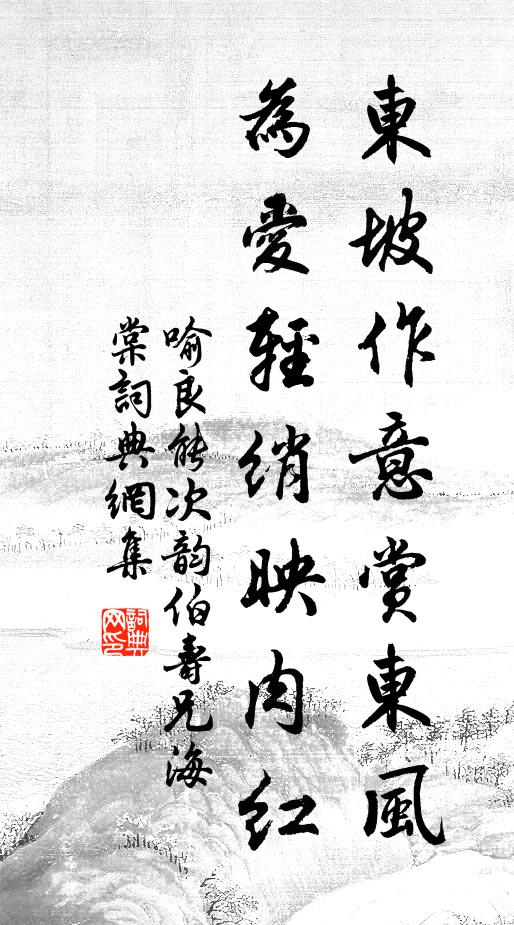 東坡作意賞東風
為愛輕綃映肉紅
喻良能次韵伯壽兄海
棠詞典網集
詞典
网印